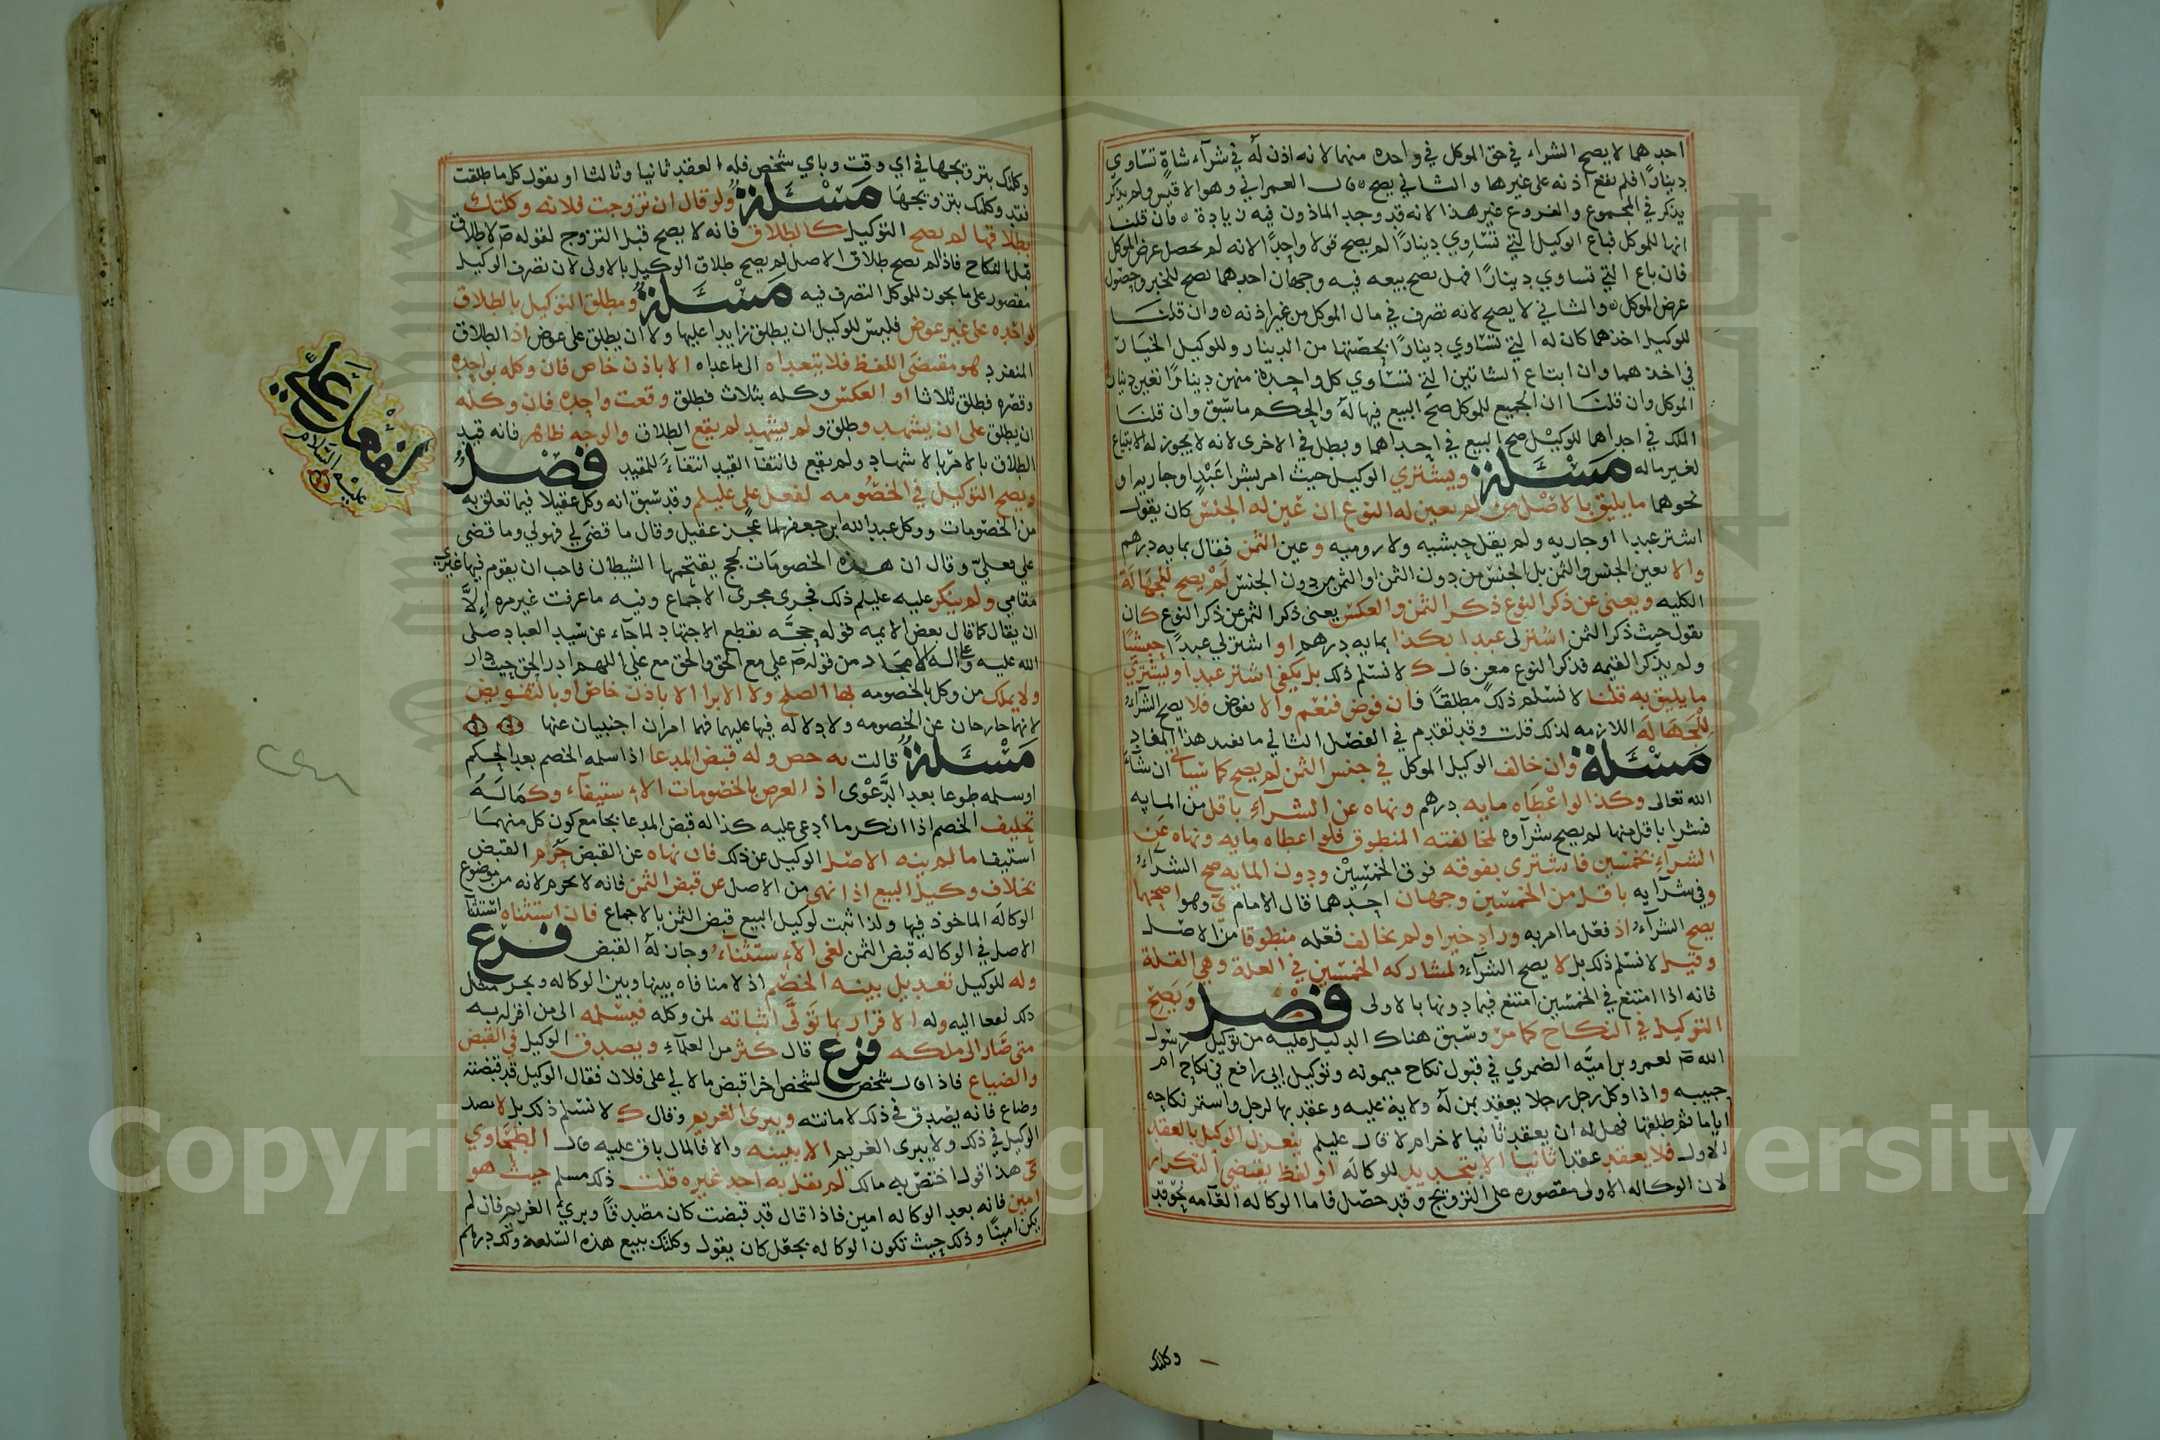 احدهما لا يصح الشراء في حق الموكل في واحده منهما لانه اذن له في شرآء شاة تساوي
دينارًا فلم يقع اذنه على غيرها والثاني يصح قال العمراني وهو الاقيس ولم يذكر
يذكر في المجموع والفروع غير هذا لانه قد وجد الماذون فيه زيادة وان قلنا
انها للموكل فباع الوكيل التي تساوي دينارًا لم يصح قولا واحدًا لانه لم يحصل غرض الموكل
فان باع التي تساوي دينارًا فهل يصح بيعه فيه وجهان احدهما يصح للخبر وحصول
غرض الموكل والثاني لا يصح لانه تصرف في مال الموكل من غير اذنه وان قلنا
للوكيل اخذهما كان له التي تساوي دينارًا بحصتها من الدينار وللوكيل الخيار
في اخذهما وان ابتاع الشاتين التي تساوي كل واحدة منهن دينارًا بغير دينار
الموكل وان قلنا ان الجميع للموكل صح البيع فيها له والحكم ما سبق وان قلنا
الملك في احداهما للوكيل صح البيع في احداهما وبطل في الاخرى لانه لا يجوز له الابتياع
لغير ماله مسئلة ويشتري الوكيل حيث امر بشرا عبد او جاريه او
نحوهما ما يليق بالاصل من لم يعين له النوع ان عين له الجنس كان يقول
اشتر عبدا او جاريه ولم يقل حبشيه ولا روميه وعين الثمن فقال بمايه درهم
والا يعين الجنس والثمن بل الجنس من دون الثمن او الثمن من دون الجنس لم يصح للجهالة
الكليه ويغني عن ذكر النوع ذكر الثمن والعكس يعني ذكر الثمن عن ذكر النوع كان
يقول حيث ذكر الثمن اشتر لي عبدا بكذا بمايه درهم او اشتر لي عبدًا حبشيًا
ولم يذكر القيمه فذكر النوع مغن قال ك لا نسلم ذلك بل يكفي اشتر عبدا ويشتري
ما يليق به قلنا لا نسلم ذلك مطلقًا فان فوض فنعم والا يفوض فلا يصح الشرآء
للجهاله اللازمه لذلك قلت وقد تقدم في الفصل الثاني ما يفيد هذا المفاد
مسئلة وان خالف الوكيل الموكل في جنس الثمن لم يصح كما سياتي ان شاء
الله تعالى وكذا لو اعطاه مايه درهم ونهاه عن الشرآء باقل من المايه
فشرا باقل منها لم يصح شرآوه لمخالفته المنطوق فلو اعطاه مايه ونهاه عن
الشرآء بخمسين فاشترى بفوقه فوق الخمسين ودون المايه صح الشرآء
وفي شرآيه باقل من الخمسين وجهان احدهما قال الامام ي وهو اصحهما
يصح الشرآء اذ فعل ما امر به وزاد خيرا ولم يخالف فعله منطوقا من الاصل
وقيل لا نسلم ذلك بل لا يصح الشرآء لمشاركه الخمسين في العلة وهي القلة
فانه اذا امتنع في الخمسين امتنع فيما دونها بالاولى فصل ويصح
التوكيل في النكاح كما مر وسبق هناك الدليل عليه من توكيل رسول
الله صم لعمرو بن اميّه الضمري في قبول نكاح ميمونه وتوكيل ابي رافع في نكاح ام
حبيبه واذا وكل رجل رجلا يعقد بمن له ولاية عليه وعقد بها لرجل واستمر نكاحه
اياما ثم طلقها فهل له ان يعقد ثانيا لاخر ام لا قال عليلم ينعزل الوكيل بالعقد
الاول فلا يعقد عقدا ثانيا الا بتجديد للوكاله او لفظ يقتضي التكرار
لان الوكاله الاولى مقصوره على التزويج وقد حصل فاما الوكاله العآمه نحو قد
وكلتك
وكلتك بتزويجها في اي وقت وباي شخص فله العقد ثانيا وثالثا او يقول كل ما طلقت
فقد وكلتك بتزويجها مسئلة ولو قال ان تزوجت فلانه وكلتك
بطلاقها لم يصح التوكيل كالطلاق فانه لا يصح قبل التزوج لقوله صم لا طلاق
قبل النكاح فاذا لم يصح طلاق الاصل لم يصح طلاق الوكيل بالاولى لان تصرف الوكيل
مقصور على ما يجوز للموكل التصرف فيه مسئلة ومطلق التوكيل بالطلاق
لواحده على غير عوض فليس للوكيل ان يطلق زايدا عليها ولا ان يطلق على عوض اذ الطلاق
المنفرد هو مقتضى اللفظ فلا يتعداه الى ما عداه الا باذن خاص فان وكله بواحده
وقصره فطلق ثلاثا او العكس وكله بثلاث فطلق وقعت واحده فان وكله
ان يطلق على ان يشهد وطلق ولم يشهد لم يقع الطلاق والوجه ظاهر فانه قيد
الطلاق بالامر بالاشهاد ولم يقع فانتفا القيد انتفآء للمقيد فصل
ويصح التوكيل في الخصومه لفعل علي عليلم وقد سبق انه وكل عقيلا فيما تعلق به
من الخصومات ووكل عبدالله ابن جعفر لما عجز عقيل وقال ما قضي لي فهو لي وما قضي
علي فعليّ وقال ان هذه الخصومات لحج يقتحمها الشيطان فاحب ان يقوم فيها غيري
مقامي ولم ينكر عليه عليلم ذلك فجرى مجرى الاجماع وفيه ما عرفت غير مره الا
ان يقال كما قال بعض الايمه قوله حجّه تقطع الاجتهاد لما جآء عن سيد العباد صلى
الله عليه وعلى اله الامجاد من قوله صم علي مع الحق والحق مع علي اللهم ادر الحق حيث دار
ولا يملك من وكل بالخصومه لها الصلح ولا الابرا الا باذن خاص او بالتفويض
لانهما خارجان عن الخصومه ولا دلاله فيها عليهما فهما امران اجنبيان عنها
مسئلة قالت يه حص وله قبض المدعا اذا سلمه الخصم بعد الحكم
او سلمه طوعا بعد الدّعوى اذ الغرض بالخصومات الاستيفآء وكماله
تحليف الخصم اذا انكر ما ادعي عليه كذا له قبض المدعا بجامع كون كل منهما
استيفا ما لم ينه الاصل الوكيل عن ذلك فان نهاه عن القبض حرم القبض
بخلاف وكيل البيع اذا نهي من الاصل عن قبض الثمن فانه لا يحرم لانه من موضوع
الوكاله الماخوذ فيها ولذا ثبت لوكيل البيع قبض الثمن بالاجماع فان استثناه استثنا
الاصل في الوكاله قبض الثمن لغي الاستثنآء وجاز له القبض فرع
وله للوكيل تعديل بينه الخصم اذ لا منافاه بينها وبين الوكاله
اليه وله الاقرار بما تولّى اثباته لمن وكله فيسلمه الى من اقر له به
متى صار الى ملكه فرع قال كثر من العلمآء ويصدق الوكيل في القبض
والضياع فاذا قال شخص لشخص اخر اقبض مالا لي على فلان فقال الوكيل قد قبضته
وضاع فانه يصدق في ذلك لامانته ويبرى الغريم وقال ك لا نسلم ذلك بل لا يصد
الوكيل في ذلك ولا يبرى الغريم الا ببينه والا فالمال باق عليه قال الطحاوي
هذا قول اختص به مالك لم يقل به احد غيره قلت ذلك مسلم حيث هو
امين فانه بعد الوكاله امين فاذا قال قد قبضت كان مصدقًا وبرئ الغريم فان لم
يكن امينًا وذلك حيث تكون الوكاله بجعل كان يقول وكلتك ببيع هذه السلعة ولك درهم
لفعل علي
عليه السلام